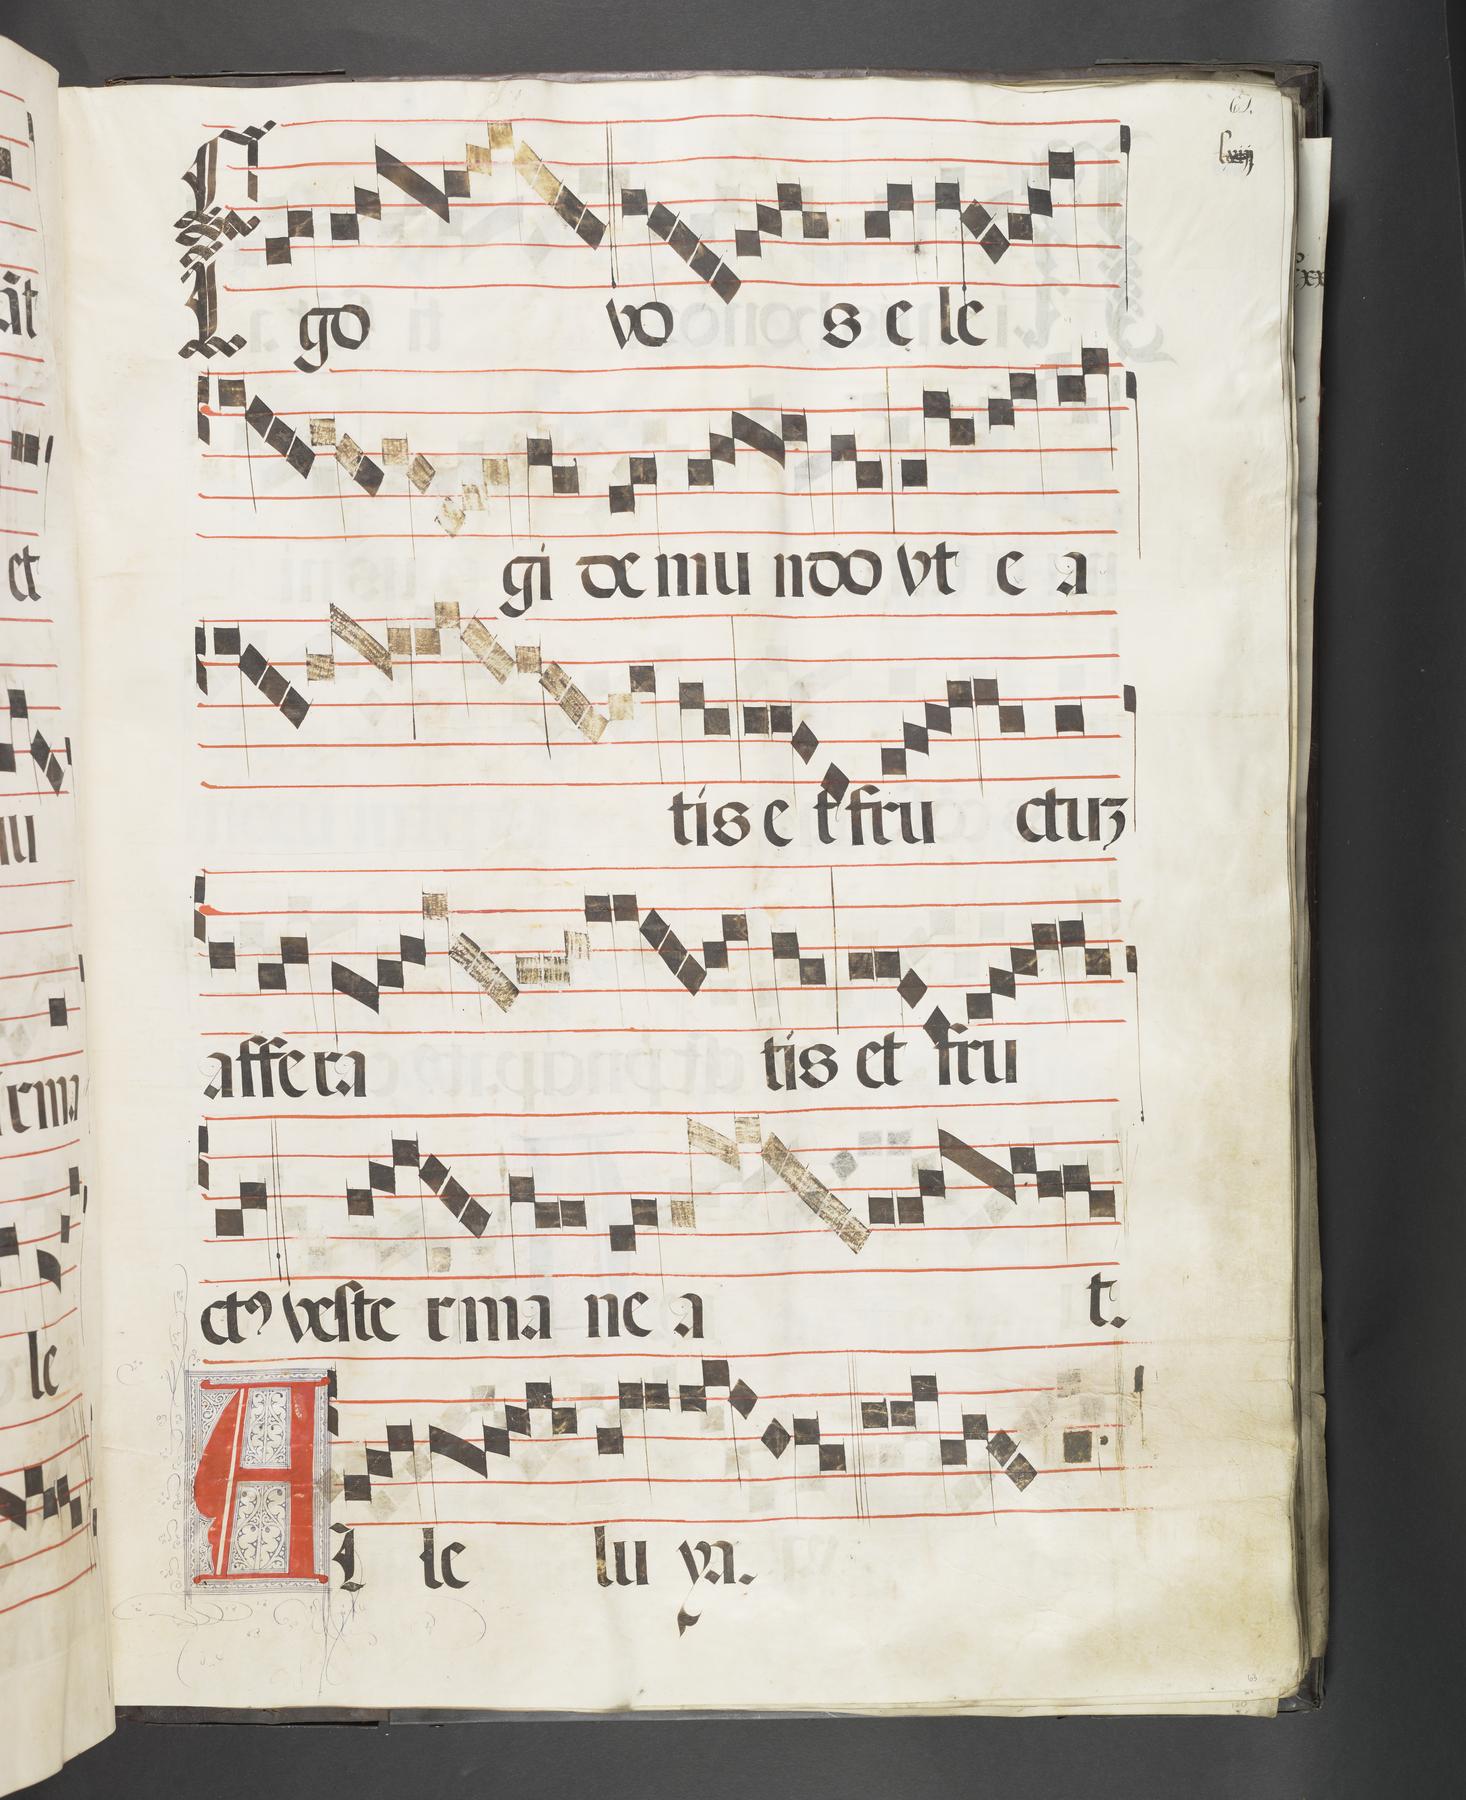 63.
Ego vo s e le
gi de mu ndo vt e a
tis e t fru ctuʒ
affera tis et fru
ctꝰ veste r ma ne a t.
Al le lu ya.
ãt
et
mu
rma
le
63